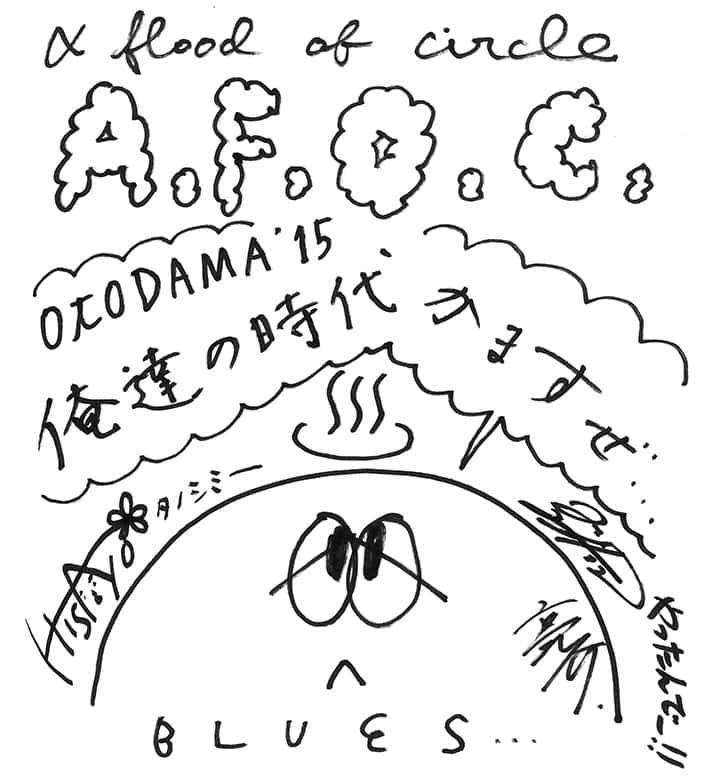 α flood of circle
A.F.O.C.
OTODAMA'15
俺達の時代、かますぜ…
HISAYO
タノシミー
やったんでー!!
BLUES...